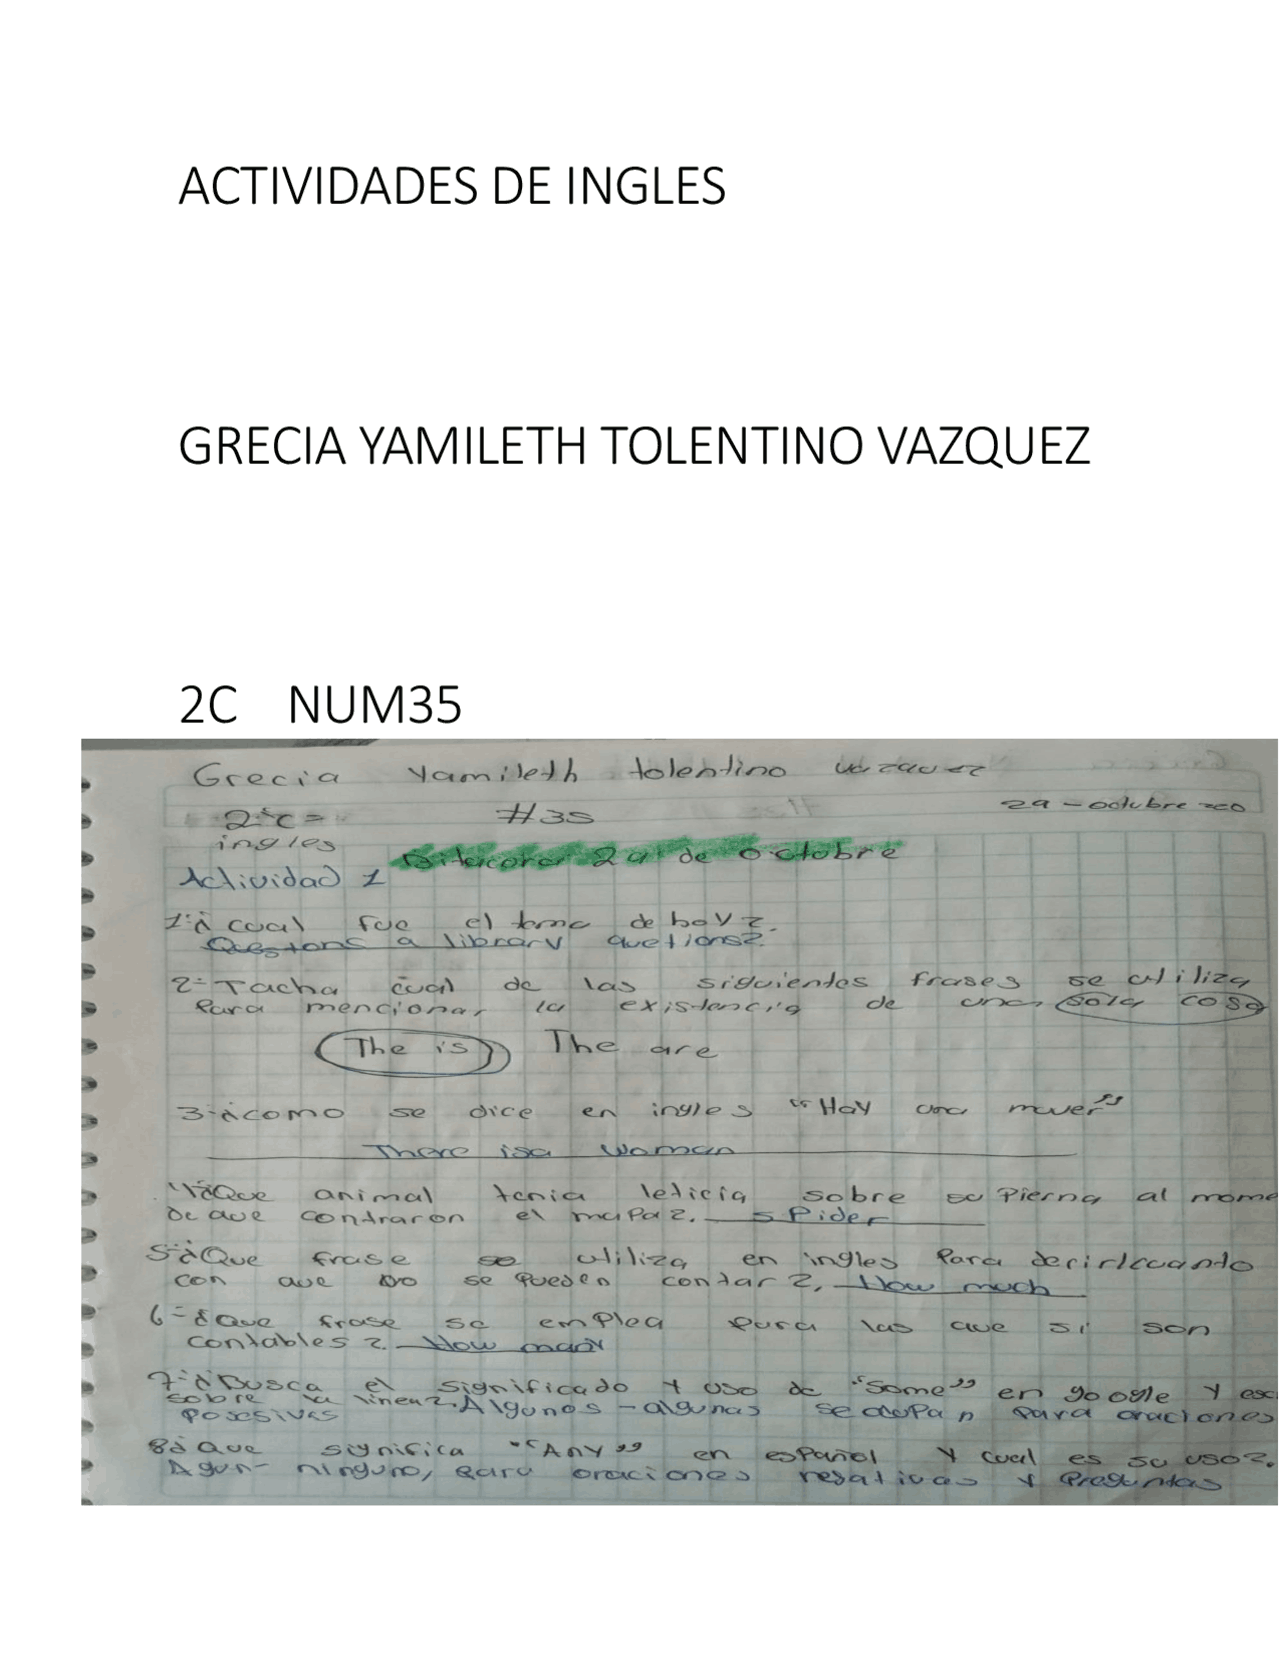 ACTIVIDADES DE INGLES
GRECIA YAMILETH TOLENTINO VAZQUEZ
2C NUM35
Grecia Yamileth tolentino vazquez
2°c= #35 29-octubre
ingles
Bitacora 29 de octubre
Actividad 1
1-¿cual fue el tema de hoy?.
Questons a library quetions?
2-Tacha cual de las siguientes frases se utiliza
Para mencionar la existencia de una sola cosa
The is) The are
3-¿como se dice en ingles "Hay una mujer"
There isa woman
4-¿Que animal tenia leticia sobre su Pierna al mome
De que contraron el mapa?. spider
5-¿Que frase se utiliza en ingles Para decir cuanto
con que no se pueden contar?. How much
6-¿Que frase se emplea para las que si son
contables?. How many
7-¿Busca el significado y uso de "some" en google y esc
sobre la linea?. Algunos - algunas se para oraciones
Posesivas
8¿Que significa "Any" en español y cual es su uso?.
Agun- ninguno, para oraciones negativas y Preguntas